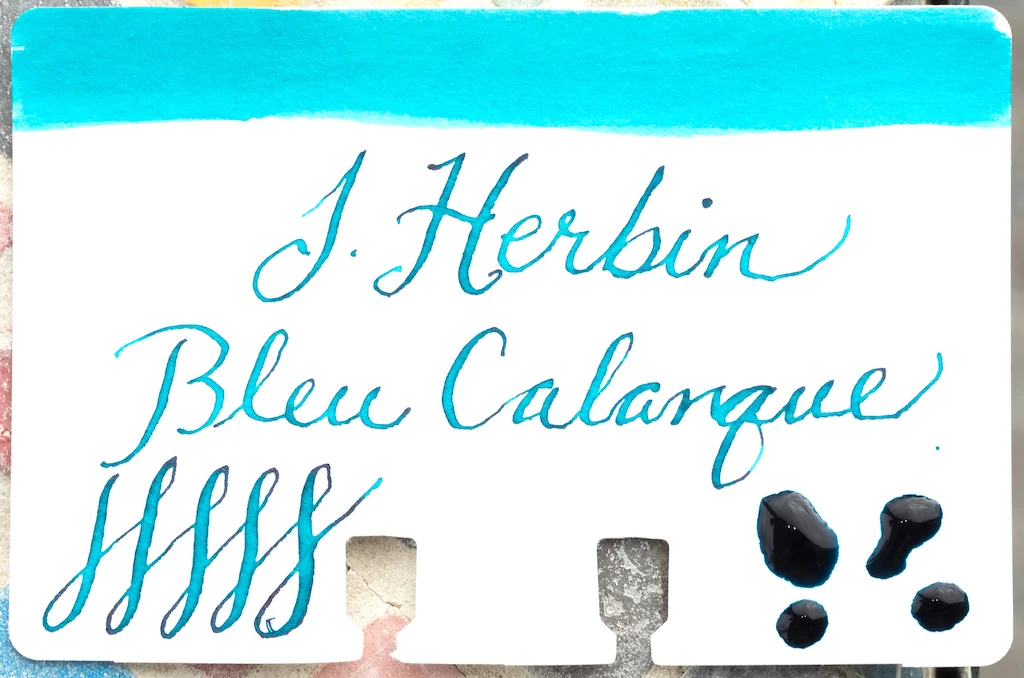 J. Herbin
Bleu Calanque